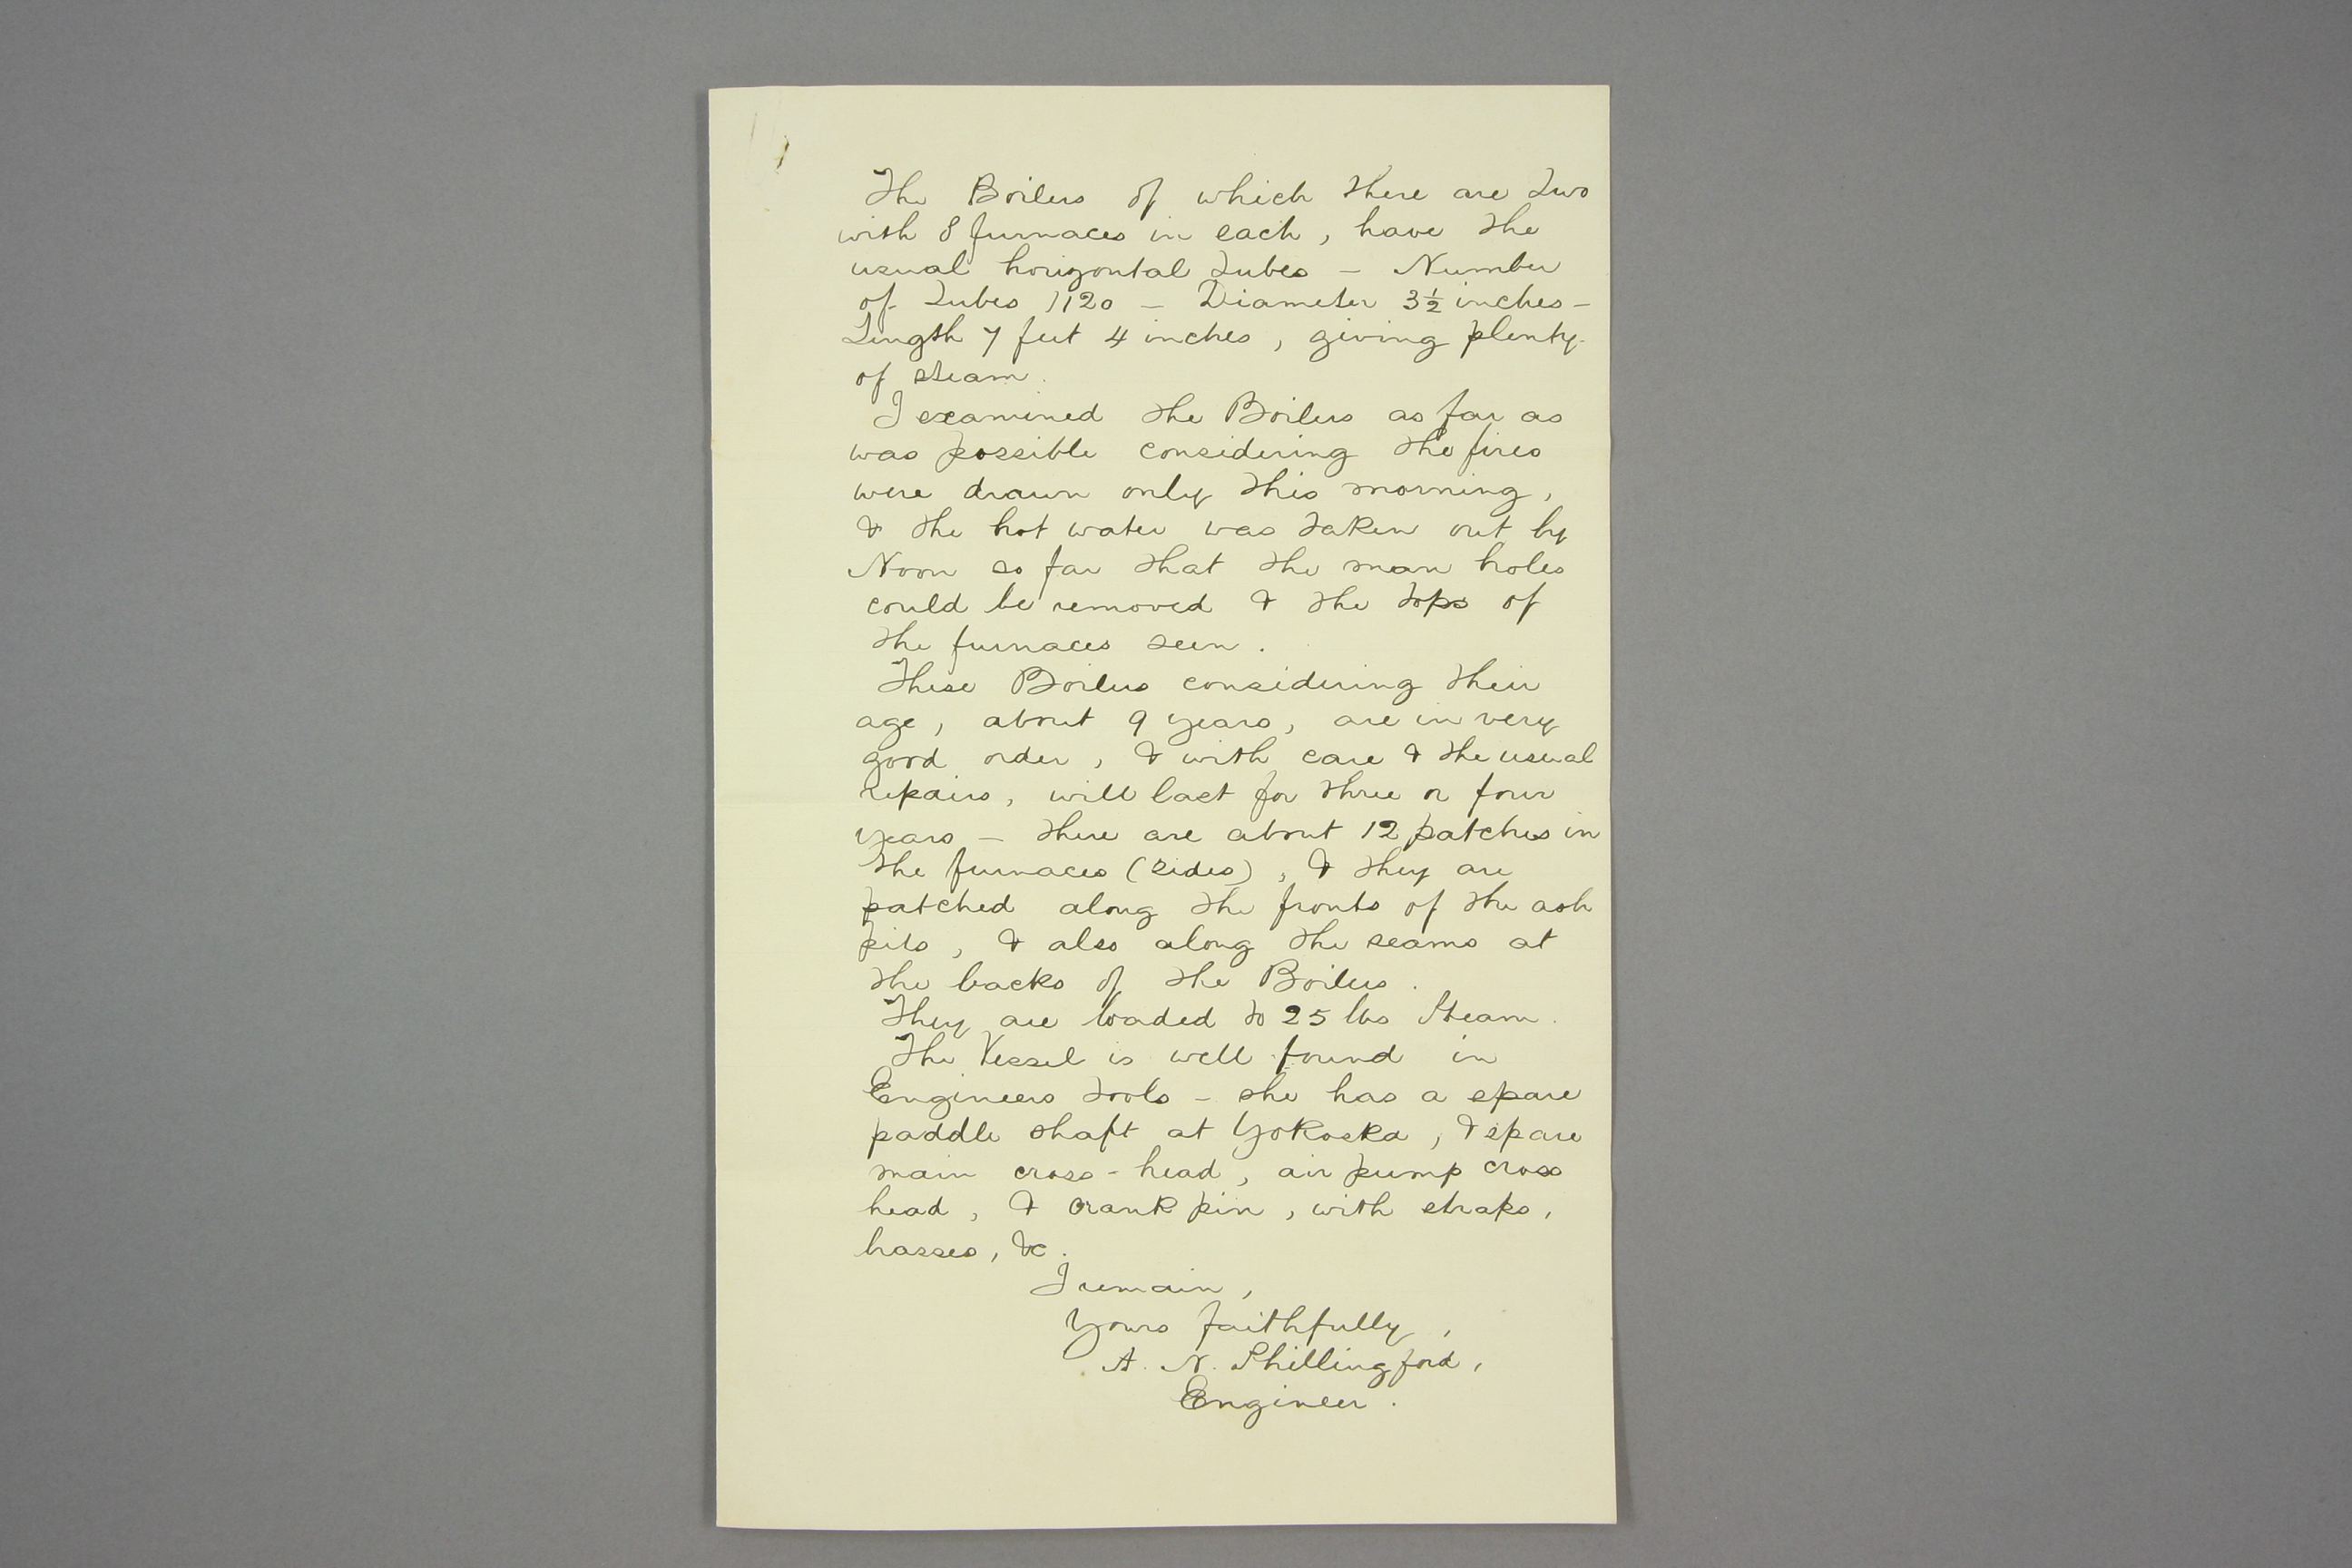 The Boilers of which there are two
with 8 furnaces in each, have the
usual horizontal tubes – Number
of tubes 1120 – Diameter 3½ inches –
Length 7 feet 4 inches, giving plenty
of steam.
I examined the Boilers as far as
was possible considering the fires
were drawn only this morning,
& the hot water was taken out by
Noon so far that the man holes
could be removed & the tops of
the furnaces seen.
These Boilers considering their
age, about 9 years, are in very
good order, & with care & the usual
repairs, will last for three or four
years – there are about 12 patches in
the furnaces (sides), & they are
patched along the fronts of the ash
pits, & also along the seams at
the backs of the Boilers.
They are loaded to 25 lbs Steam.
The Vessel is well found in
Engineers tools – she has a spare
paddle shaft at Yokoska, & spare
main cross-head, air pump cross
head, & crank pin, with straps,
brasses, &c.
I remain,
Yours faithfully,
A. N. Shillingford,
Engineer.